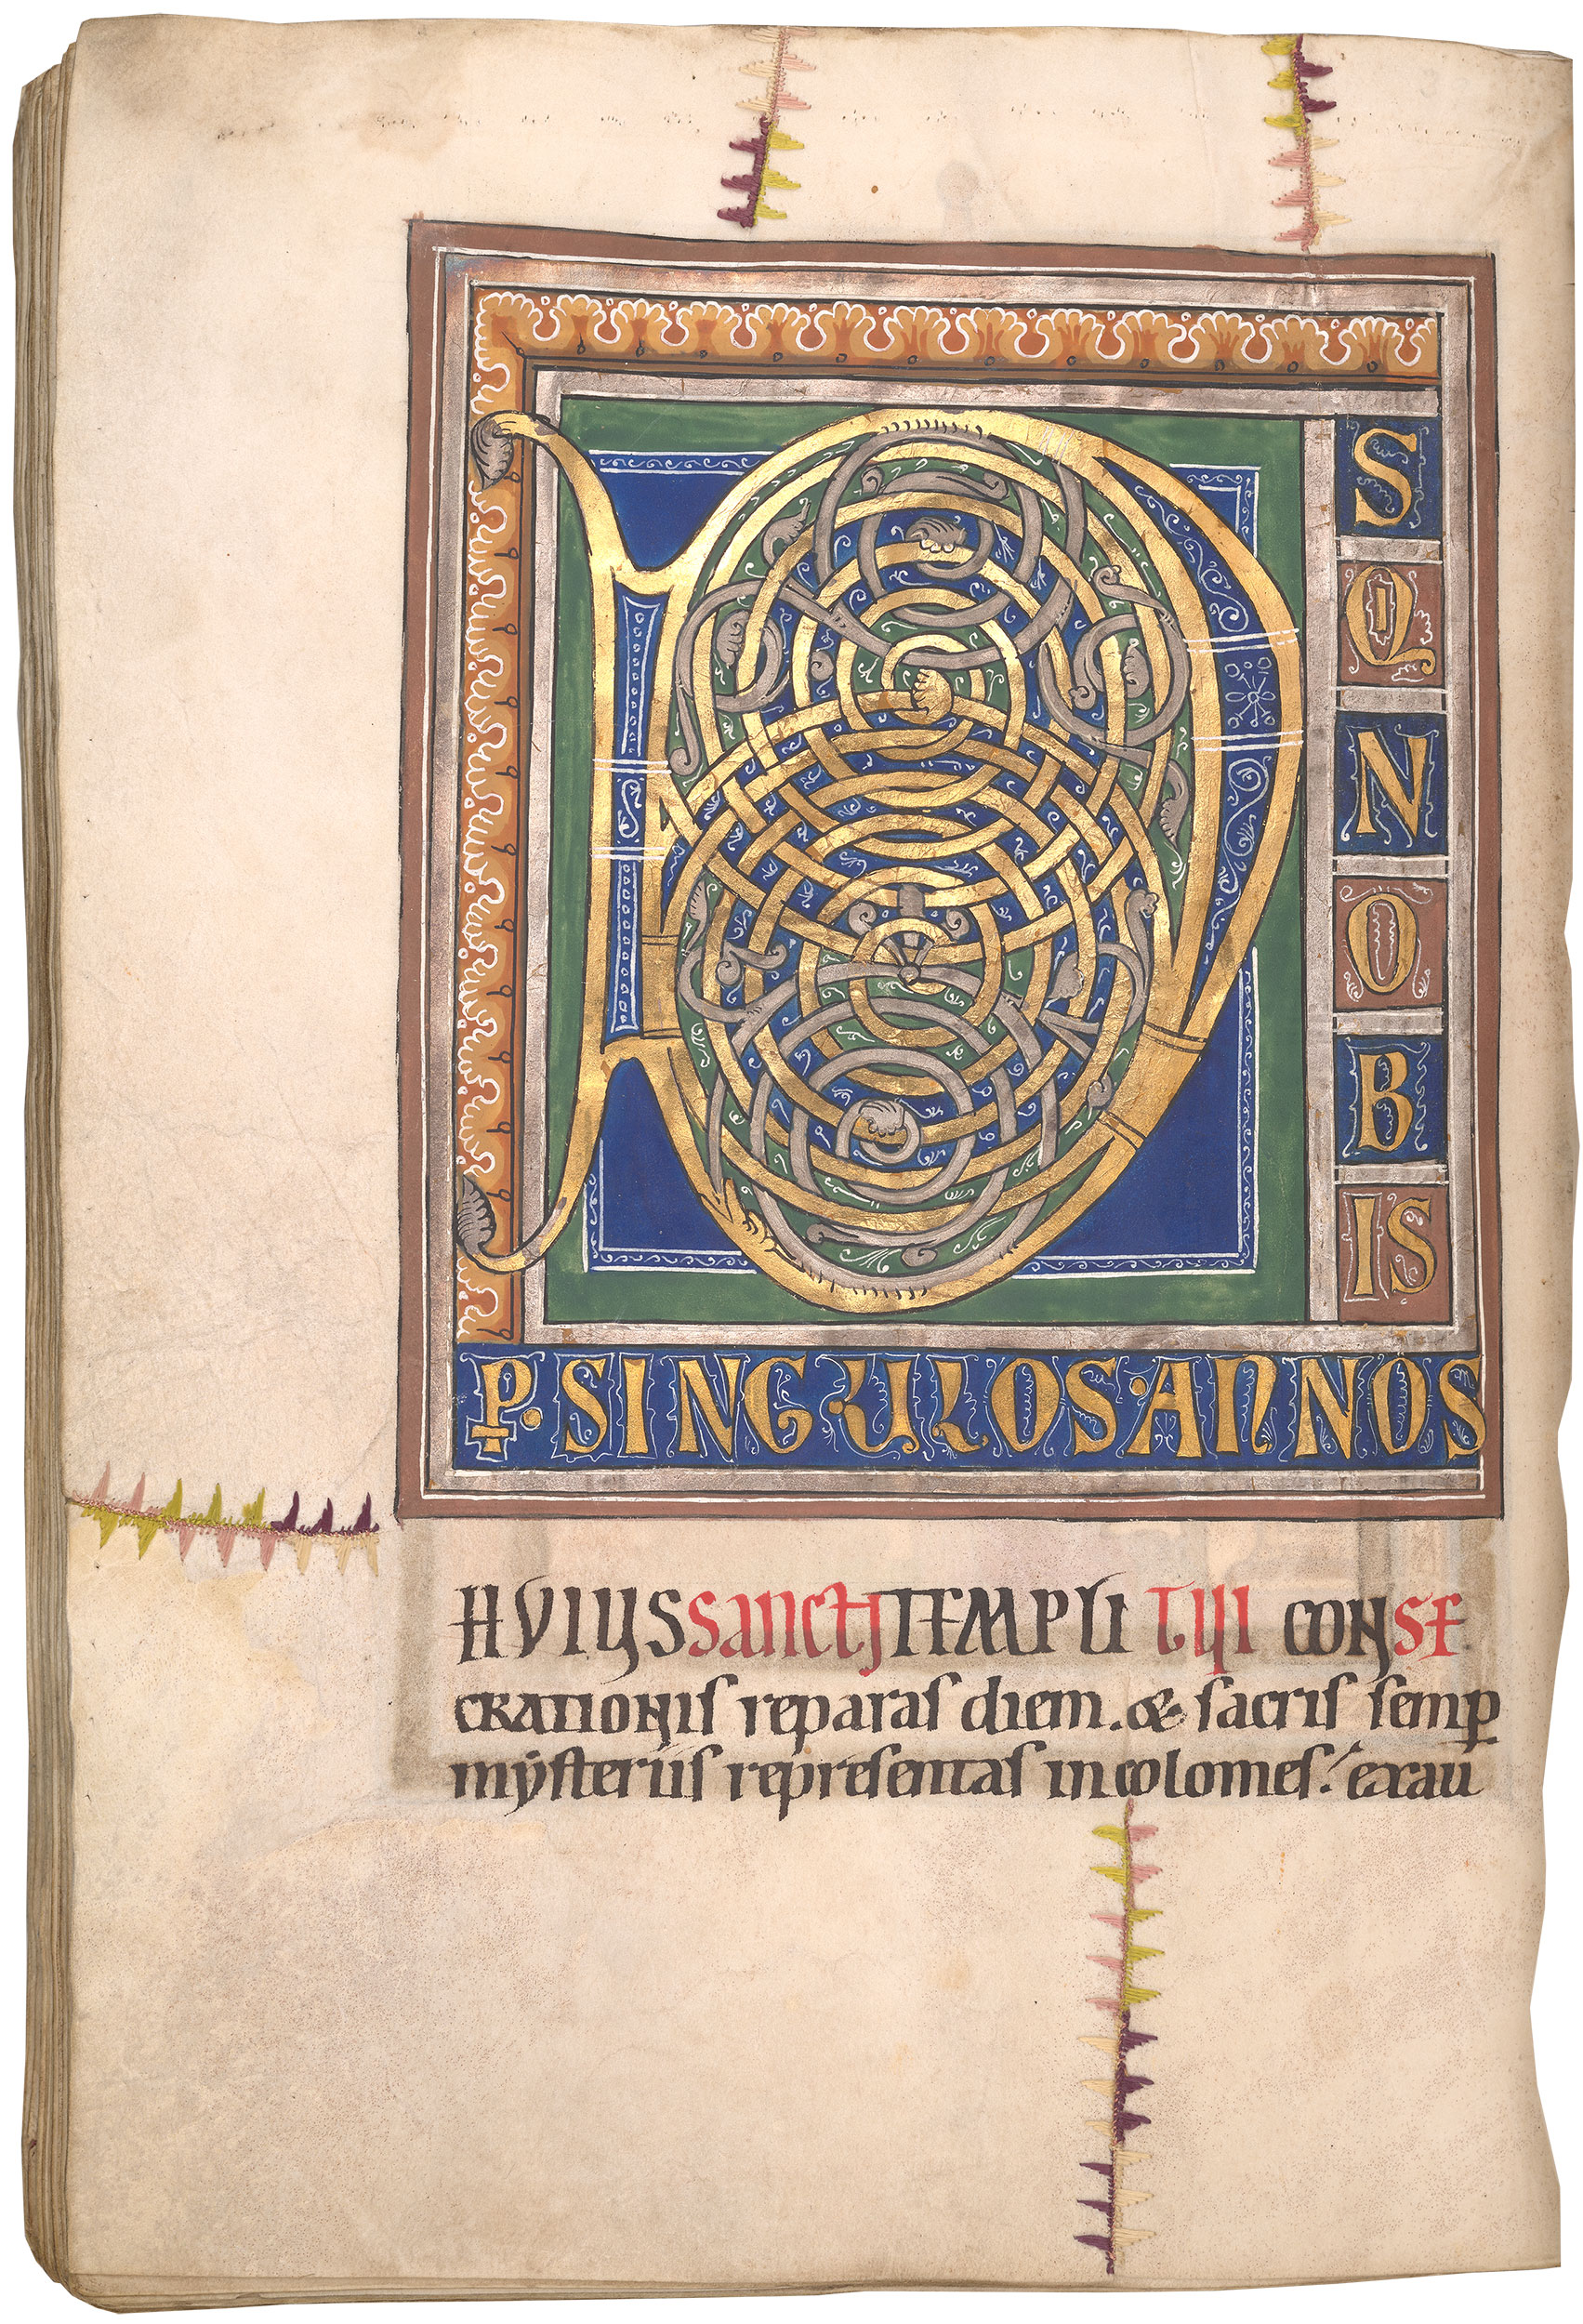 D
S
Q
N
O
B
IS
P. SINGULOS·ANNOS
HVIUS SANCTI TEMPLI TUI CONSE
CRATIONIS reparas diem. & sacris semp
mẏsteriis representas incolomes. exau